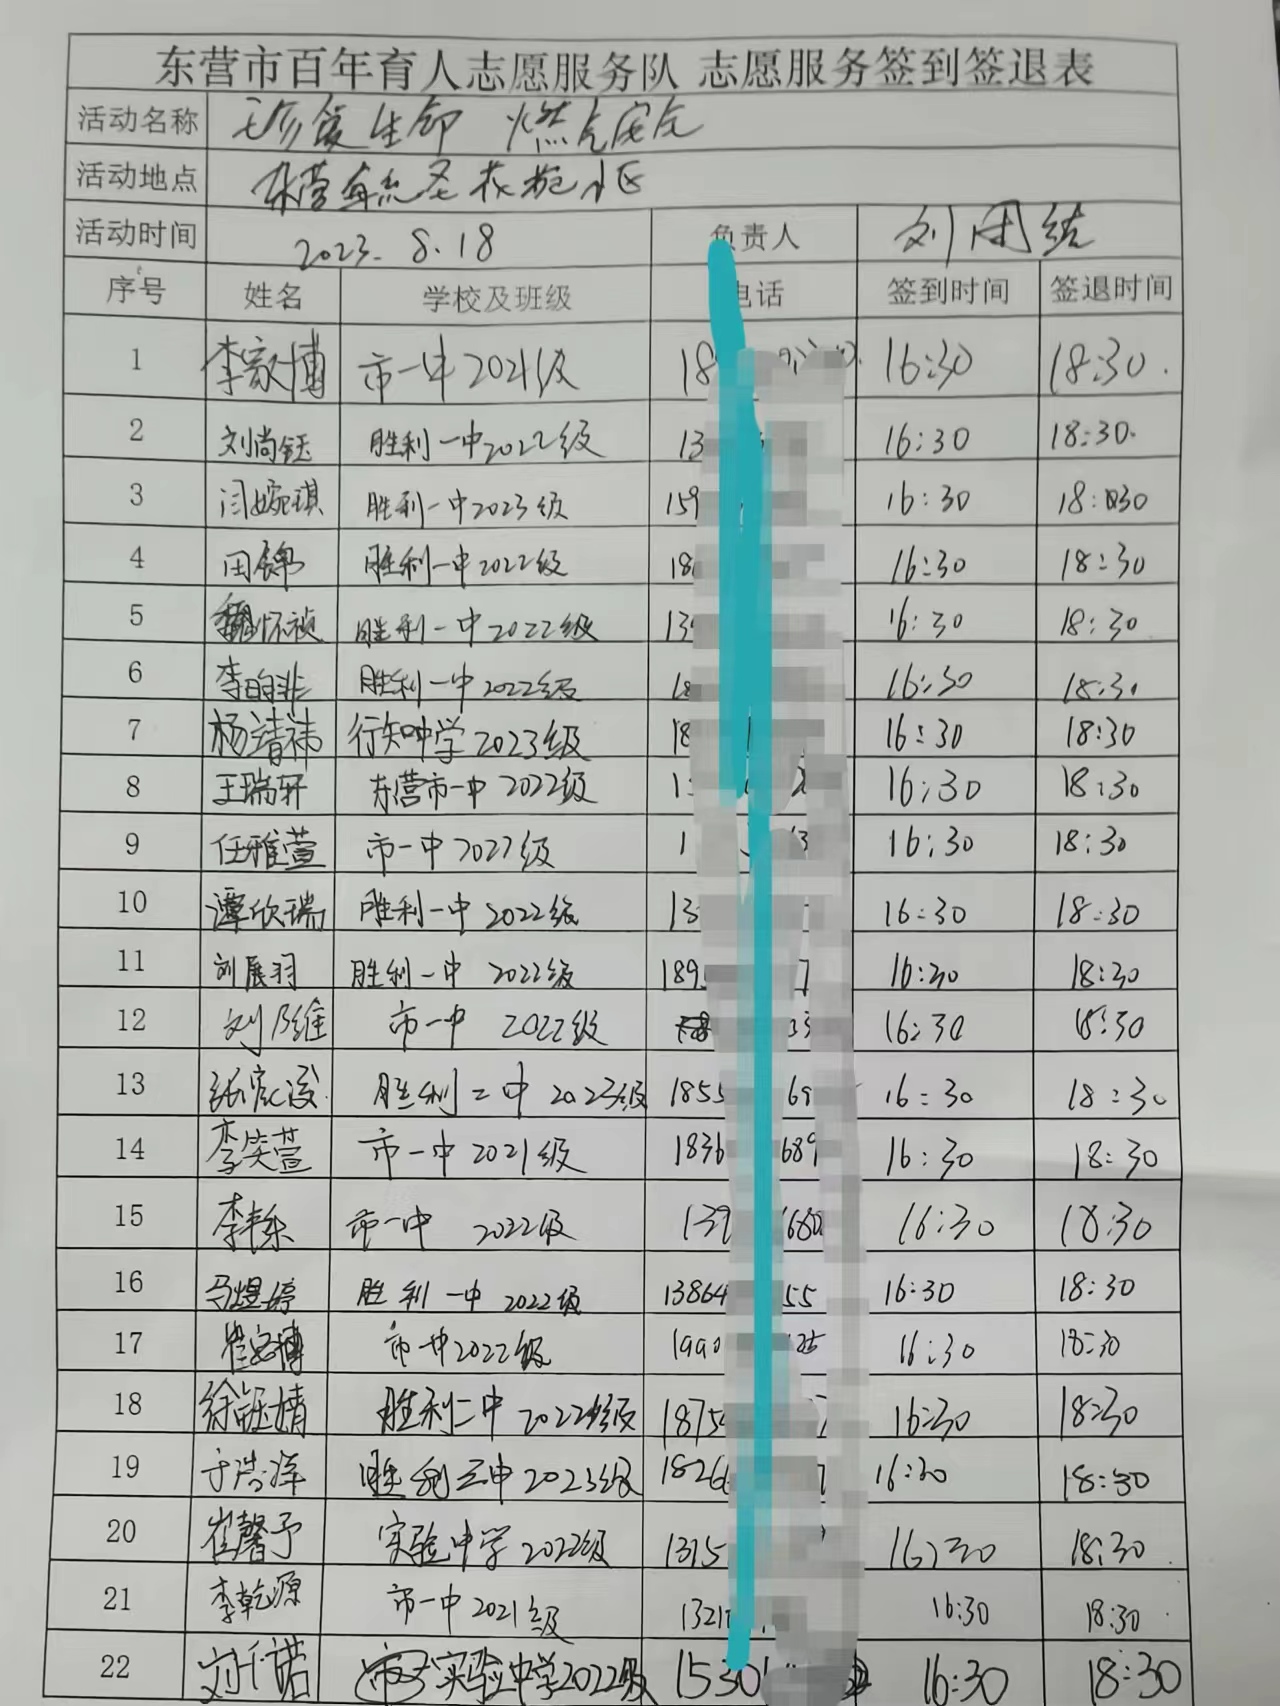 东营市百年育人志愿服务队 志愿服务签到签退表
活动名称 珍爱生命 燃气安全
活动地点 小区
活动时间 2023.8.18 负责人 刘团结
序号 姓名 学校及班级 电话 签到时间 签退时间
1 李家博 市一中2021级 18 16:30 18:30.
2 刘尚钰 胜利一中2022级 13 16:30 18:30.
3 闫婉琪 胜利一中2023级 159 16:30 18:30
4 田锦 胜利一中2022级 18 16:30 18:30
5 怀祯 胜利一中2022级 13 16:30 18:30
6 李昀非 胜利一中2022级 18 16:30 18:30
7 杨靖祎 行知中学2023级 18 16:30 18:30
8 王瑞轩 东营市一中2022级 1 16:30 18:30
9 任雅萱 市一中2022级 1 16:30 18:30
10 谭欣瑞 胜利一中2022级 13 16:30 18:30
11 刘展羽 胜利一中2022级 189 7 16:30 18:30
12 刘 市一中2022级 33 16:30 18:30
13 张宸浚 胜利二中2023级 1855 69 16:30 18:30
14 李笑萱 市一中2021级 1836 689 16:30 18:30
15 李 市一中2022级 139 680 16:30 18:30
16 马煜婷 胜利一中2022级 13864 55 16:30 18:30
17 崔宏博 市一中2022级 1990 16:30 18:30
18 徐钰婧 胜利二中2022级 1875 7 16:30 18:30
19 于浩泽 胜利三中2023级 18266 16:30 18:30
20 崔馨予 实验中学2022级 1315 16:30 18:30.
21 李乾源 市一中2021级 1321 16:30 18:30
22 刘千诺 实验中学2022级 1530 16:30 18:30